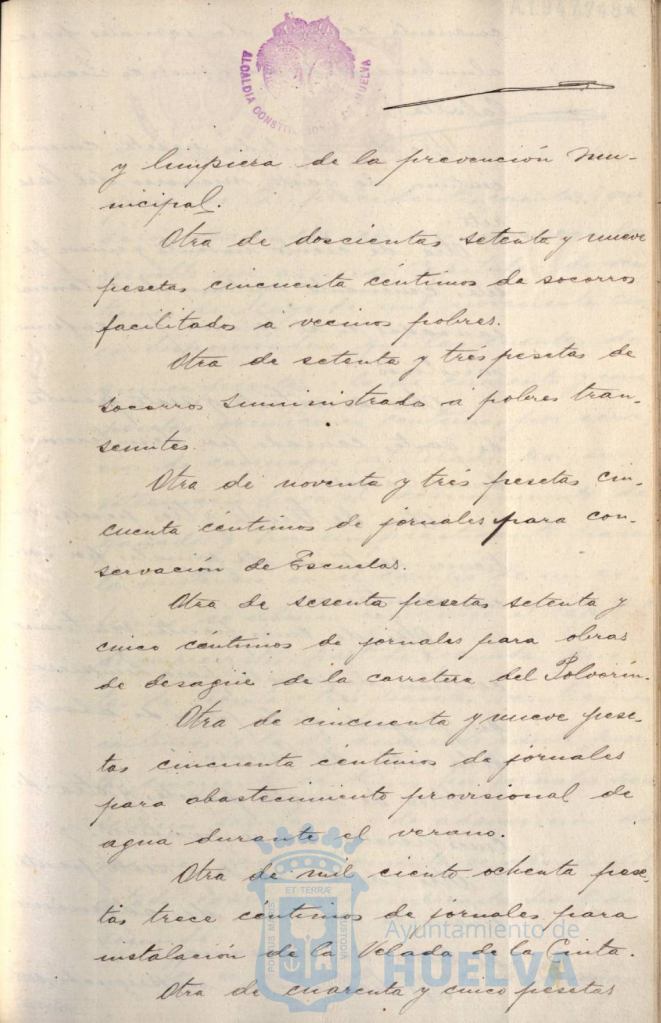 ALCALDIA CONSTITUCIONAL DE HUELVA
y limpieza de la prevención mu-
nicipal.
Otra de doscientas setenta y nueve
pesetas cincuenta céntimos de socorros
facilitados a vecinos pobres.
Otra de setenta y tres pesetas de
socorros suministrado a pobres tran-
seuntes.
Otra de noventa y tres pesetas cin-
cuenta céntimos de jornales para con-
servación de Escuelas.
Otra de sesenta pesetas setenta y
cinco céntimos de jornales para obras
de desagüe de la carretera del Polvorín.
Otra de cincuenta y nueve pese-
tas cincuenta céntimos de jornales
para abastecimiento provisional de
agua durante el verano.
Otra de mil ciento ochenta pese-
tas trece centimos de jornales para
instalación de la Velada de la Cinta.
Otra de cuarenta y cinco pesetas
PORTUS MARIS ET TERRÆ CUSTODIA
Ayuntamiento de
HUELVA